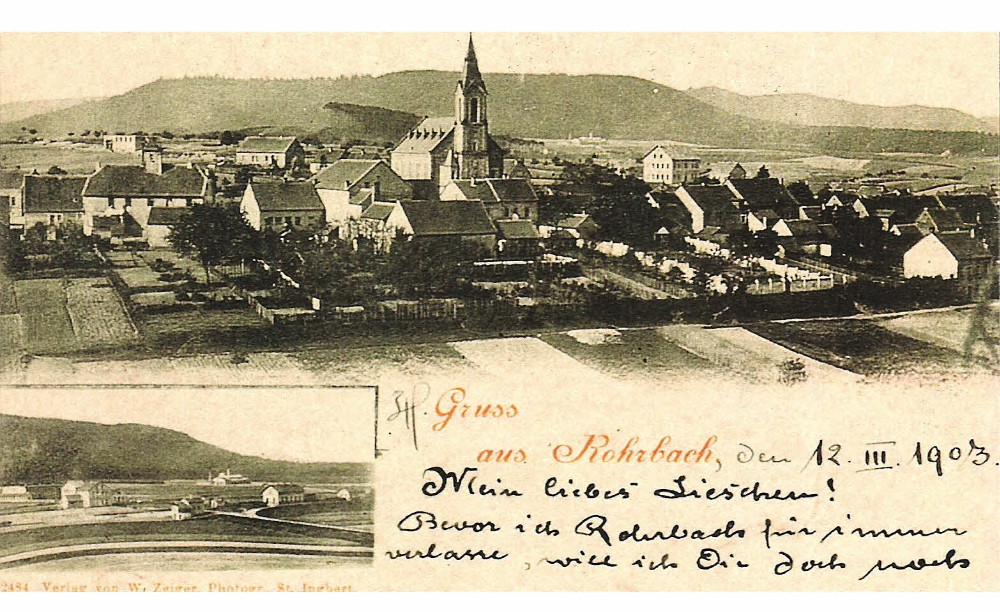 Gruss
aus Rohrbach, den 12. III. 1903.
Mein liebes Lieschen!
Bevor ich Rohrbach für immer
verlasse, will ich Dir doch noch
2484 Verlag von W. Zeiger, Photogr. St. Ingbert.